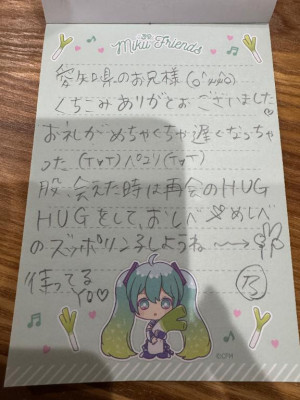 Miku Friends
愛知県のお兄様(o^^o)
くちこみありがとおございました♡
お礼がめちゃくちゃ遅くなっちゃ
った(T▽T)ペコリ(T▽T)
股、会えた時は再会のHUG
HUGをして、おしべ めしべ
のズッポリンコしようね〜〜→
待ってる
yo♡
©CFM